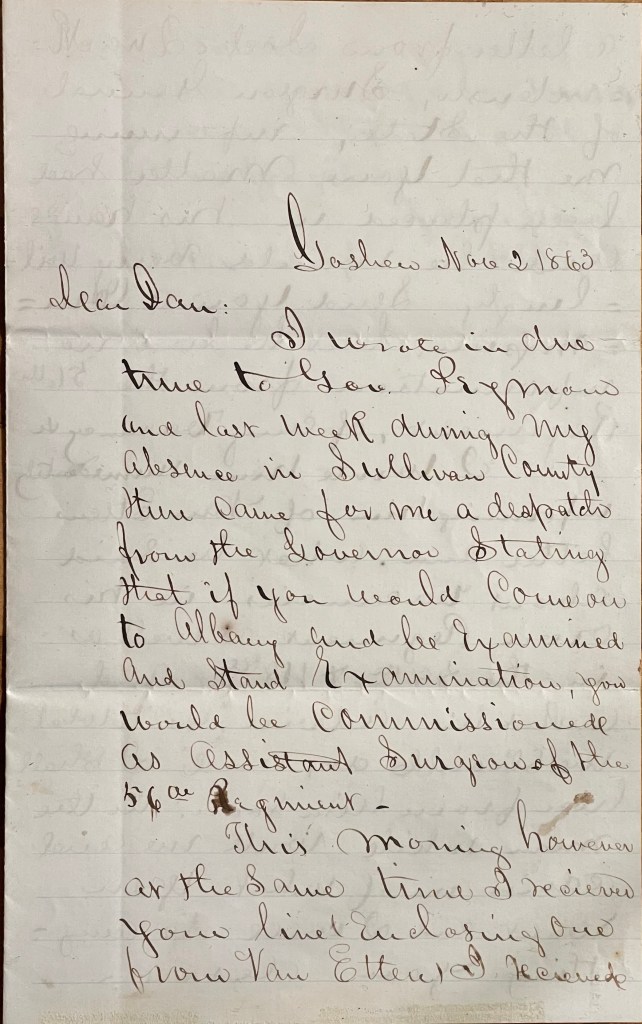 Goshen Nov 2 1863
Dear Dan:
I wrote in due
time to Gov. Seymour
and last week during my
absence in Sullivan County
there came for me a despatch
from the Governor Stating
that if you would Come on
to Albany and be Examined
and Stand Examination, you
would be Commissioned
as Assistant Surgeon of the
56th Regiment -
This morning however
at the Same time I recieved
your line (Enclosing one
from Van Etten) I recieved